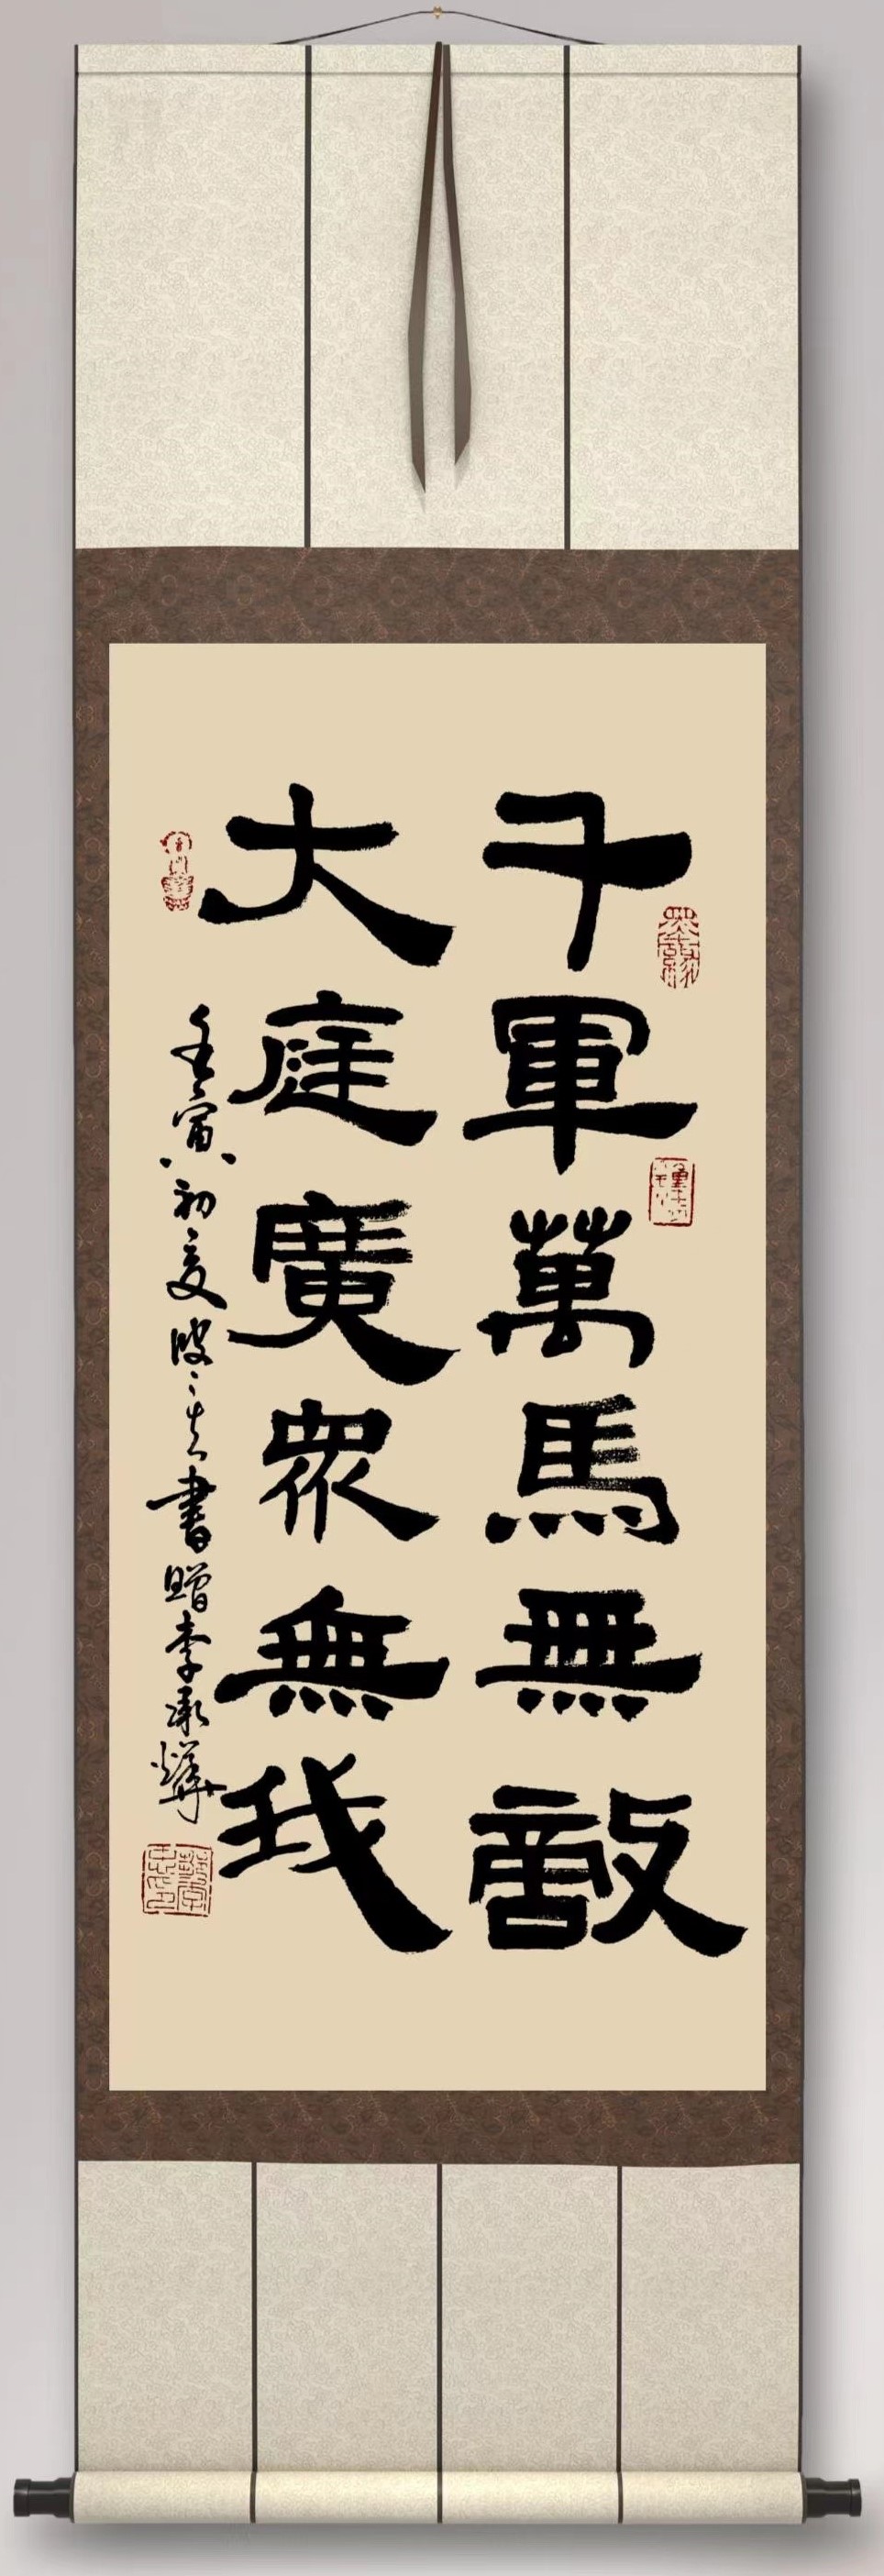 千軍萬馬無敵
大庭廣衆無我
壬寅初夏
書贈李承